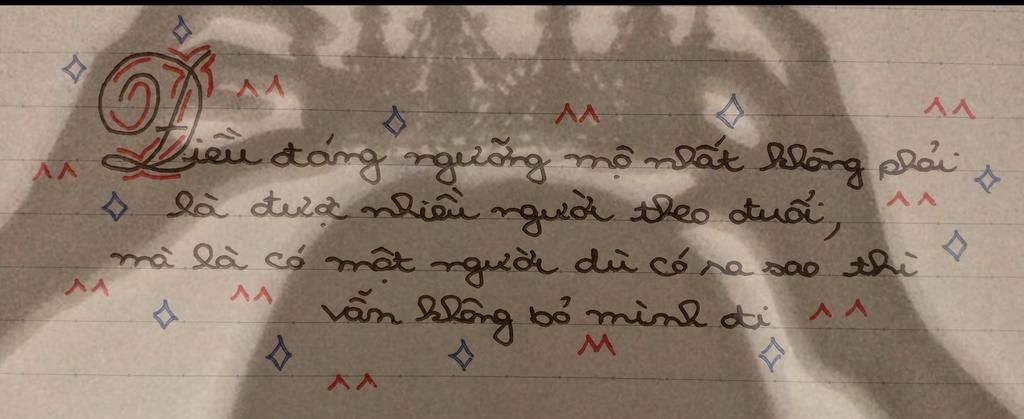 Điều đáng ngưỡng mộ nhất không phải
là được nhiều người theo đuổi,
mà là có một người dù có ra sao thì
vẫn không bỏ mình đi